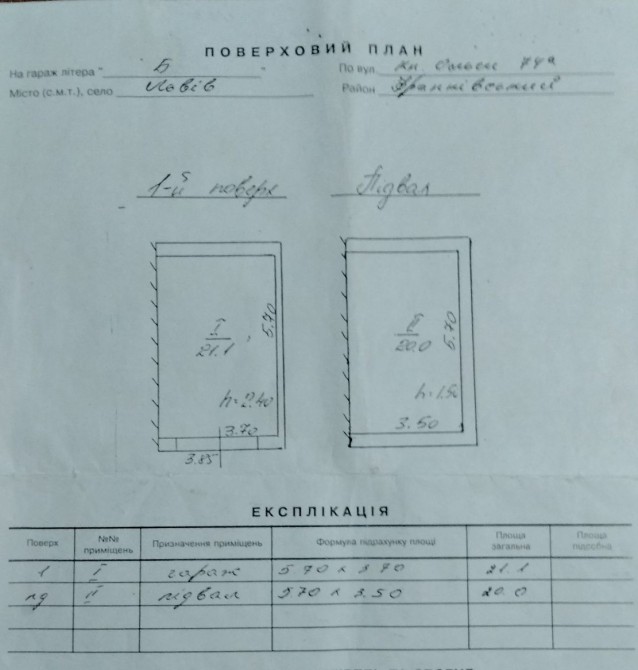 ПОВЕРХОВИЙ ПЛАН
На гараж літера " Б "
По вул. Кн. Ольги 79а
Місто (с.м.т.), село Львів
Район Франківський
1-й поверх
Підвал
5.70
5.70
I
21.1
II
20.0
h=2.40
h=1.90
3.70
3.50
3.85
ЕКСПЛІКАЦІЯ
Поверх №№ приміщень Призначення приміщень Формула підрахунку площі Площа загальна Площа підсобна
1 I гараж 5.70 x 3.70 21.1
пд II підвал 5.70 x 3.50 20.0